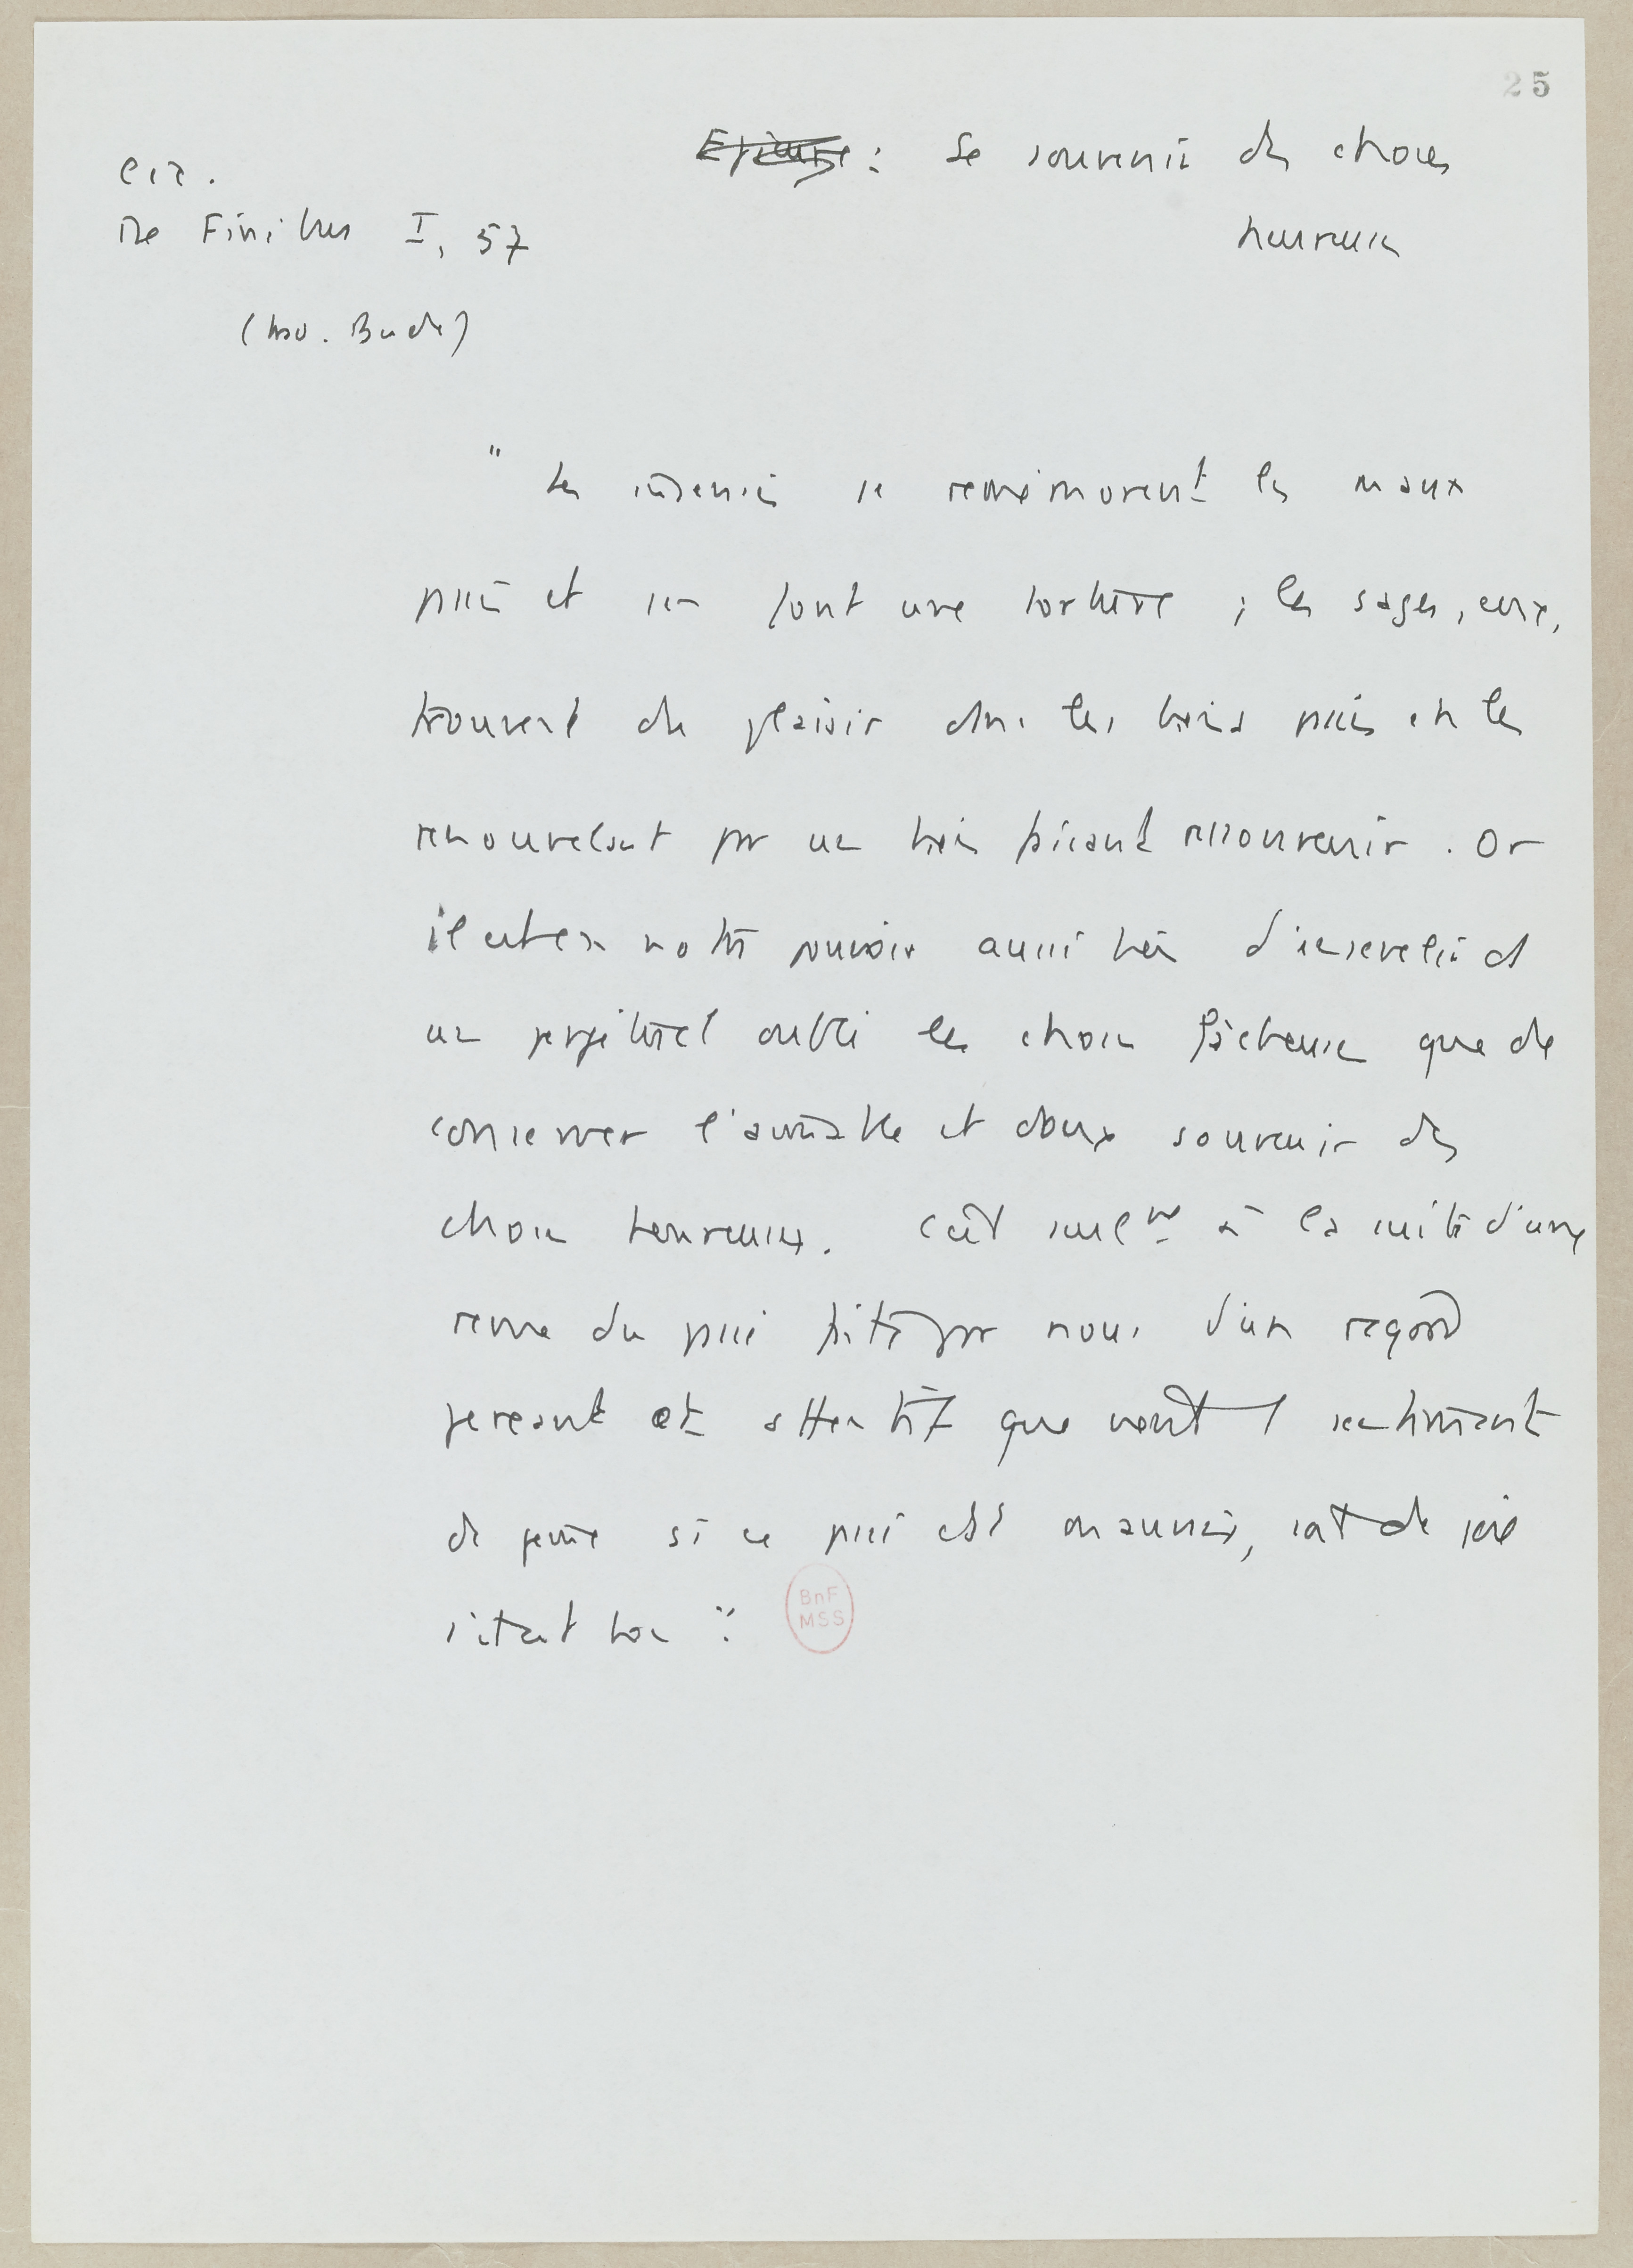 25
Cic.
De Finibus I, 57
(trad. Budé)
Epicure : Se souvenir des choses
heureuses
" Les insensés se remémorent les maux
passés et s'en font une torture ; les sages, eux,
trouvent du plaisir dans les biens passés en les
renouvelant par un bien faisant ressouvenir. Or
il est en notre pouvoir aussi bien d'ensevelir ds
un perpétuel oubli les choses fâcheuses que de
conserver l'aimable et doux souvenir des
choses heureuses. C'est seulmt à la suite d'une
revue du passé faite par nous d'un regard
perçant et attentif que vient le sentiment
de peine si ce passé est mauvais, et de joie
s'il est bon ".
BnF
MSS